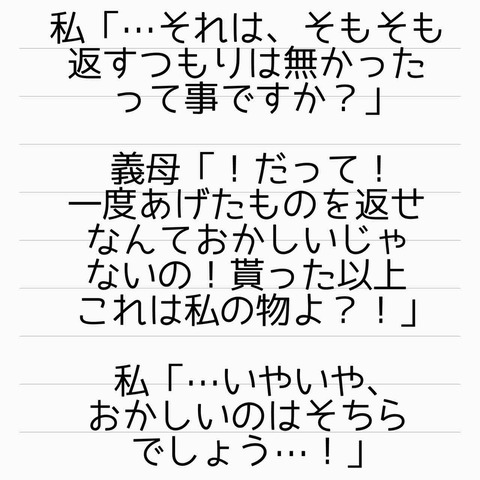 私「…それは、そもそも
返すつもりは無かった
って事ですか？」
義母「！だって！
一度あげたものを返せ
なんておかしいじゃ
ないの！貰った以上
これは私の物よ？！」
私「…いやいや、
おかしいのはそちら
でしょう…！」